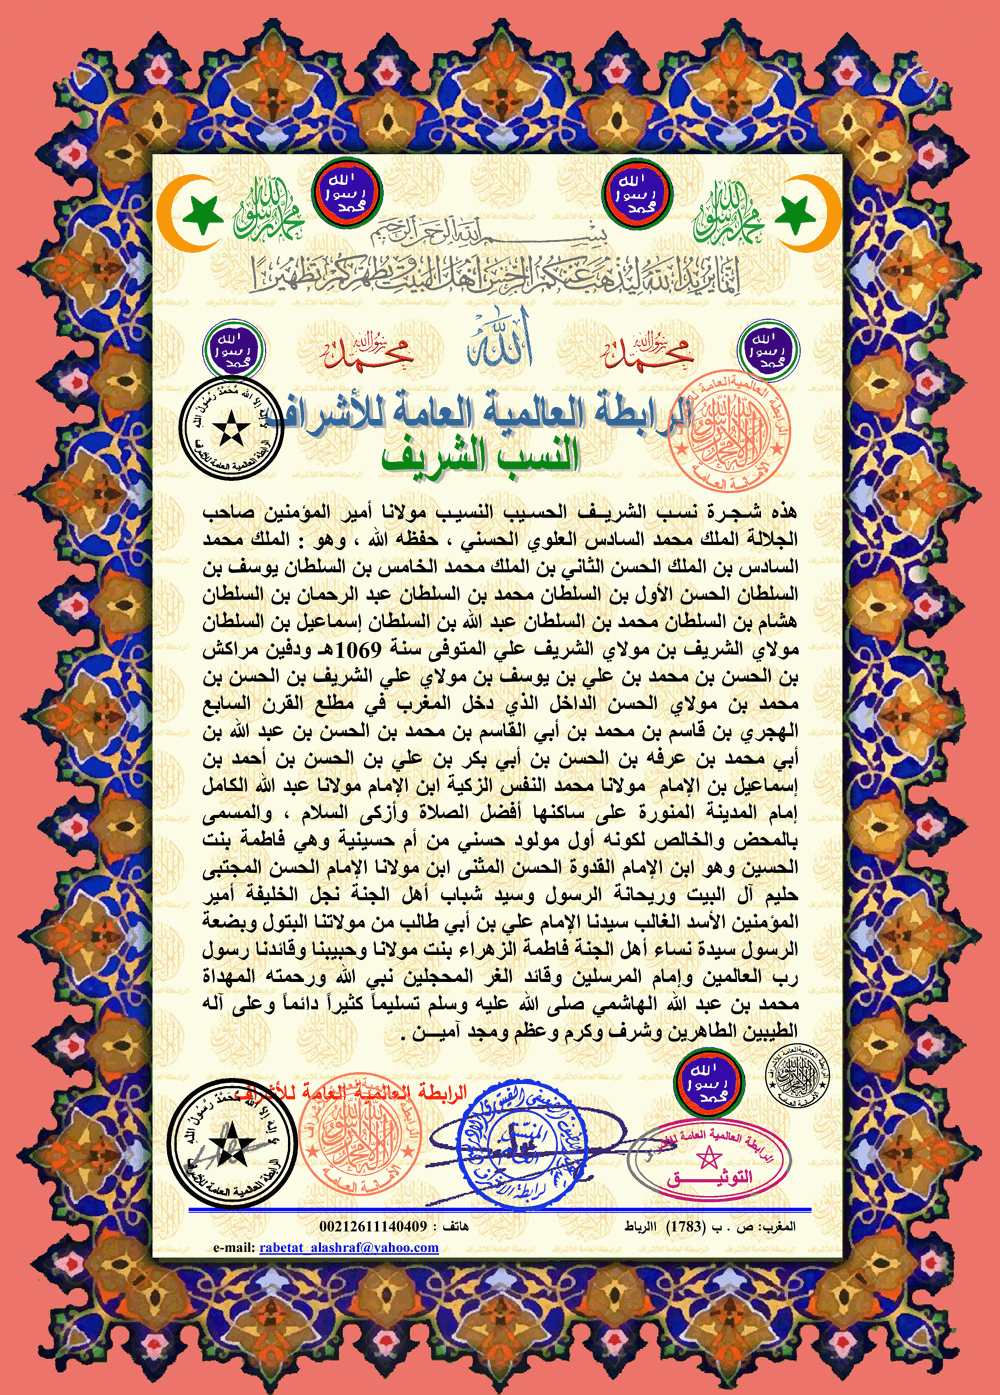 الله رسول محمد
الله رسول محمد
محمد رسول الله
محمد رسول الله
بسم الله الرحمن الرحيم
إنما يريد الله ليذهب عنكم الرجس أهل البيت ويطهركم تطهيرا
الله
محمد رسول الله
محمد رسول الله
الله رسول محمد
الله رسول محمد
الرابطة العالمية العامة للأشراف
النسب الشريف
لا إله إلا الله محمد رسول الله
الرابطة العالمية العامة للأشراف
الرابطة العالمية العامة للأشراف
الأمانة العامة
هذه شـجـرة نسـب الشريـف الحسـيب النسيـب مولانا أمير المؤمنين صاحب
الجلالة الملك محمد السادس العلوي الحسني ، حفظه الله ، وهو : الملك محمد
السادس بن الملك الحسن الثاني بن الملك محمد الخامس بن السلطان يوسف بن
السلطان الحسن الأول بن السلطان محمد بن السلطان عبد الرحمان بن السلطان
هشام بن السلطان محمد بن السلطان عبد الله بن السلطان إسماعيل بن السلطان
مولاي الشريف بن مولاي الشريف علي المتوفى سنة 1069هـ ودفين مراكش
بن الحسن بن محمد بن علي بن يوسف بن مولاي علي الشريف بن الحسن بن
محمد بن مولاي الحسن الداخل الذي دخل المغرب في مطلع القرن السابع
الهجري بن قاسم بن محمد بن أبي القاسم بن محمد بن الحسن بن عبد الله بن
أبي محمد بن عرفه بن الحسن بن أبي بكر بن علي بن الحسن بن أحمد بن
إسماعيل بن الإمام مولانا محمد النفس الزكية ابن الإمام مولانا عبد الله الكامل
إمام المدينة المنورة على ساكنها أفضل الصلاة وأزكى السلام ، والمسمى
بالمحض والخالص لكونه أول مولود حسني من أم حسينية وهي فاطمة بنت
الحسين وهو ابن الإمام القدوة الحسن المثنى ابن مولانا الإمام الحسن المجتبى
حليم آل البيت وريحانة الرسول وسيد شباب أهل الجنة نجل الخليفة أمير
المؤمنين الأسد الغالب سيدنا الإمام علي بن أبي طالب من مولاتنا البتول وبضعة
الرسول سيدة نساء أهل الجنة فاطمة الزهراء بنت مولانا وحبيبنا وقائدنا رسول
رب العالمين وإمام المرسلين وقائد الغر المحجلين نبي الله ورحمته المهداة
محمد بن عبد الله الهاشمي صلى الله عليه وسلم تسليماً كثيراً دائماً وعلى آله
الطيبين الطاهرين وشرف وكرم وعظم ومجد آميـــن .
الرابطة العالمية العامة للأشراف
لا إله إلا الله محمد رسول الله
الرابطة العالمية العامة للأشراف
الأمانة العامة
الله رسول محمد
الرابطة العالمية العامة للأشراف
التوثيـــق
المغرب: ص . ب (1783) االرباط
هاتف : 00212611140409
e-mail: rabetat_alashraf@yahoo.com